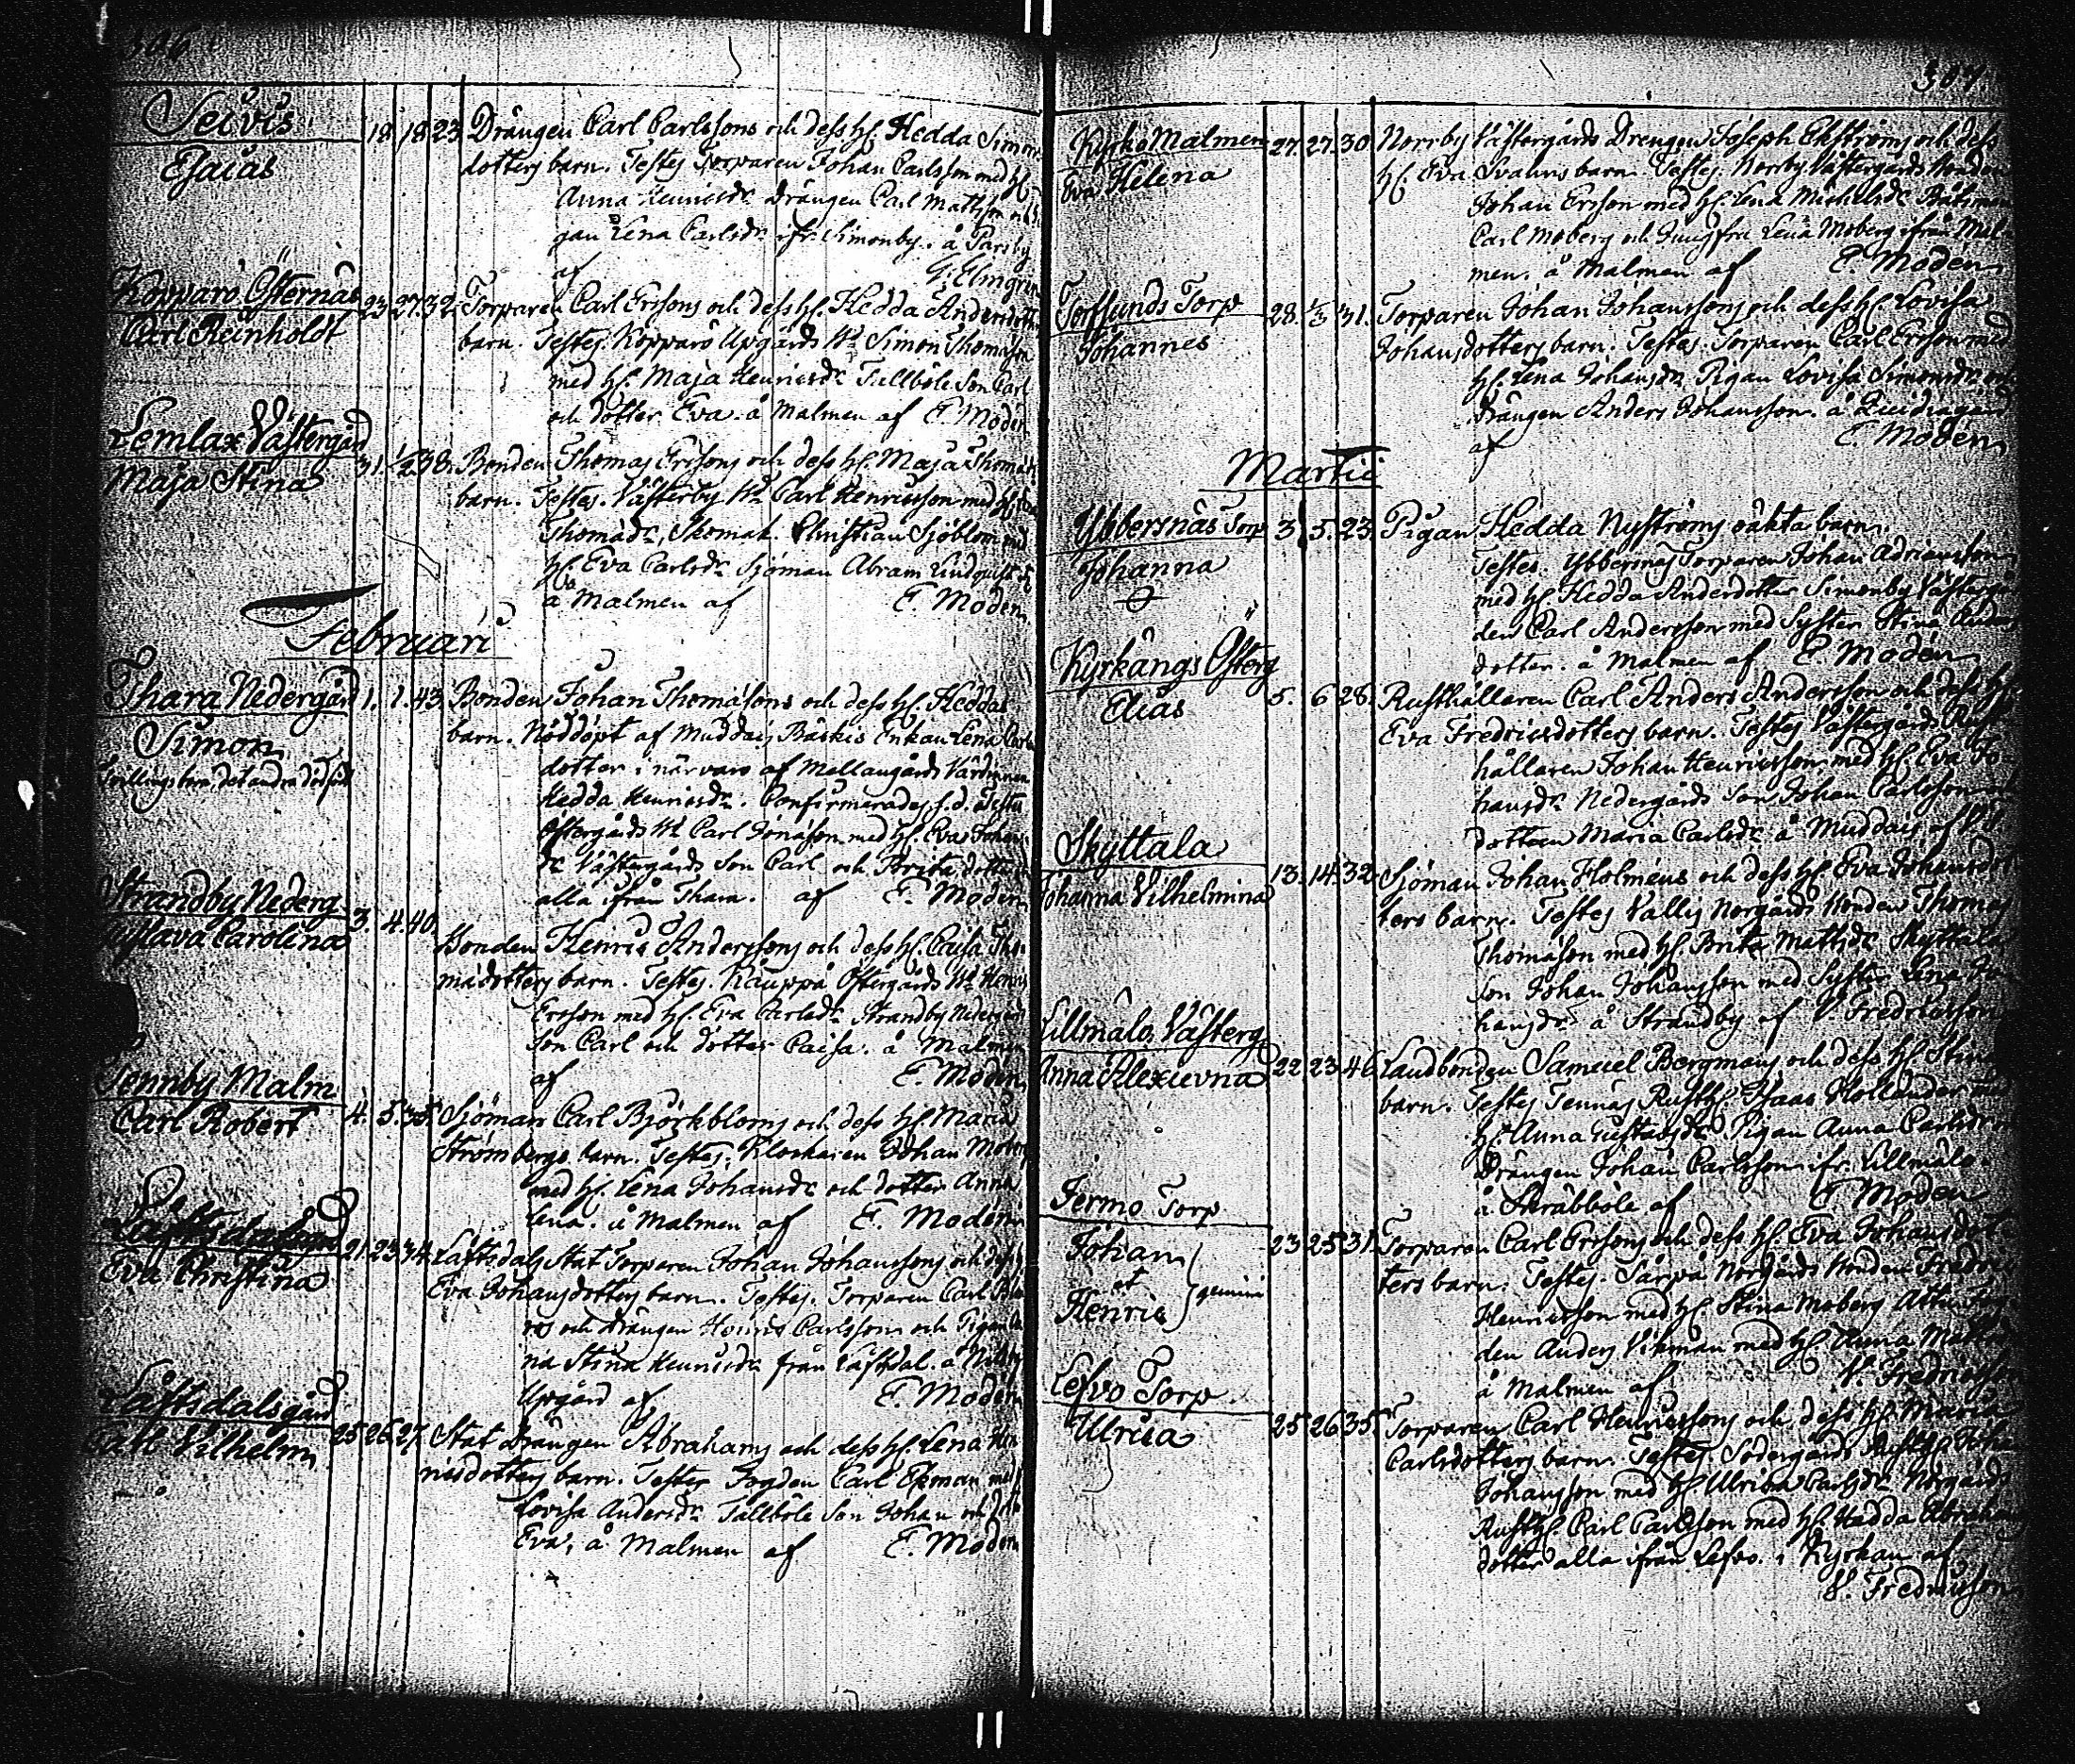 306
Seivis
Esaias
18. 18. 23. Drängen Carl Carlssons och dess h. Hedda Simons
dotters barn. Testes Torparen Johan Carlsson med h.
Anna Henricsdr. Drängen Carl Mattsson och Pi
gan Lena Carlsdr. ifr. Simonby. å Parsby
af G. Elmgren
Kopparö Östernäs
Carl Reinholdt
23. 27. 32. Torparen Carl Erssons och dess h. Hedda Andersdotters
barn. Testes. Kopparö Upgårds Simon Thomasson
med h. Maja Henricsdr. Tallböle Son Carl
och dotter Eva. å Malmen af E. Modén
Lemlax Västergård
Maja Stina
31. 38. Bonden Thomas Erssons och dess h. Maja Thomædr.
barn. Testes. Västerby Carl Henricsson med h.
Thomædr., Skomak. Christian Sjöblom med
h. Eva Carlsdr. Sjöman Abram Lindqvist
å Malmen af E. Modén
Februari
Thara Nedergård
Simon
Tvillingsbarn, det andra dödfödt
1. 1. 43. Bonden Johan Thomassons och dess h. Heddas
barn. Nöddöpt af Muddais Bäskis Enkan Lena Carls
dotter i närvaro af Mellangårds Värdinnan
Hedda Henricsdr. Confirmerades s.d. Testes
Östergårds Carl Jonasson med h. Eva Johans
dr. Västergårds Son Carl och Brita dotter
alla ifrån Thara. af E. Modén
Strandby Nederg.
Gustava Carolina
3. 4. 40. Bonden Henric Anderssons och dess h. Caisa Tho
mædotters barn. Testes. Kauppä Östergårds Henric
Ersson med h. Eva Carlsdr. Strandby Nedergårds
Son Carl och dotter Caisa. å Malmen
af E. Modén
Tennby Malm
Carl Robert
4. 5. 35. Sjöman Carl Björkbloms och dess h. Maria
Strömbergs barn. Testes. Klockaren Johan Moberg
med h. Lena Johansdr. och dotter Anna
Lena. å Malmen af E. Modén
Laftsdalsgård
Eva Christina
21. 23. 34. Laftsdals Stat Torparen Johan Johanssons och dess h.
Eva Johansdotters barn. Testes. Torparen Carl
och Drängen Henric Carlsson och Pigan
Stina Henricsdr. från Laftsdal. å
Upgård af E. Modén
Laftsdalsgård
Carl Vilhelm
25. 26. 27. Stat Drängen Abrahams och dess h. Lena Hen
ricsdotters barn. Testes Fogden Carl Ekman med
Lovisa Andersdr. Tallböle Son Johan och dotter
Eva, å Malmen af E. Modén
307
Kyrko Malmen
Eva Helena
27. 27. 30. Norrby Västergårds Drengen Joseph Ekströms och dess
h. Eva Svahns barn. Testes. Norrby Västergårds Bonden
Johan Ersson med h. Lena Michelsdr. Båtsman
Carl Moberg och Jungfru Lena Moberg ifrån Mal
men. å Malmen af E. Modén
Torssunds Torp
Johannes
28. 1/3 31. Torparen Johan Johanssons och dess h. Lovisa
Johansdotters barn. Testes. Torparen Carl Ersson med
h. Lena Johansdr. Pigan Lovisa Simonsdr. och
Drängen Anders Johansson. å Qvidiagård
af E. Modén
Martii
Ybbersnäs Torp
Johanna
3. 5. 23. Pigan Hedda Nyströms oäkta barn.
Testes. Ybbersnäs Torparen Johan Adriansson
med h. Hedda Andersdotter Simonby Västergår
den Carl Andersson med Syster Stina Anders
dotter. å Malmen af E. Modén
Kyrkängs Österg.
Elias
5. 6. 28. Rusthållaren Carl Anders Andersson och dess h.
Eva Fredricsdotters barn. Testes Västergårds Rust
hållaren Johan Henricsson med h. Eva Jo
hansdr. Nedergårds Son Johan Carlsson och
dottren Maria Carlsdr. å Muddais af V. F.
Skyttala
Johanna Vilhelmina
13. 14. 32. Sjöman Johan Holméns och dess h. Eva Johansdot
ters barn. Testes Vallis Norgårds Bonden Thomas
Thomasson med h. Brita Matsdr. Skyttala
Son Johan Johansson med Syster Lena Jo
hansdr. å Strandby af V. Fredricsson
Lillmälo Västerg.
Anna Alexievna
22. 23. 46. Landbonden Samuel Bergmans och dess h. Stina
barn. Testes Tennäs Rusth. Isaac Hollander med
h. Anna Gustavsdr. Pigan Anna Carlsdr. och
Drängen Johan Carlsson ifr. Lillmälo.
å Skräbböle af E. Modén
Jermo Torp
Johan
et
Henric
gemini
23. 25. 31. Torparen Carl Erssons och dess h. Eva Johansdot
ters barn. Testes. Sårpå Norgårds Bonden Fredric
Henricsson med h. Stina Moberg Attu Fog
den Anders Vikman med h. Anna
å Malmen af V. Fredricsson
Lefvo Torp
Ulrica
25. 26. 35. Torparen Carl Henricssons och dess h. Maria
Carlsdotters barn. Testes. Södergårds Rusth. Johan
Johansson med h. Ulrica Carlsdr. Norgårds
Rusth. Carl Carlsson med h. Hedda Abrahams
dotter alla ifrån Lefvo. i Kyrkan af
V. Fredricsson